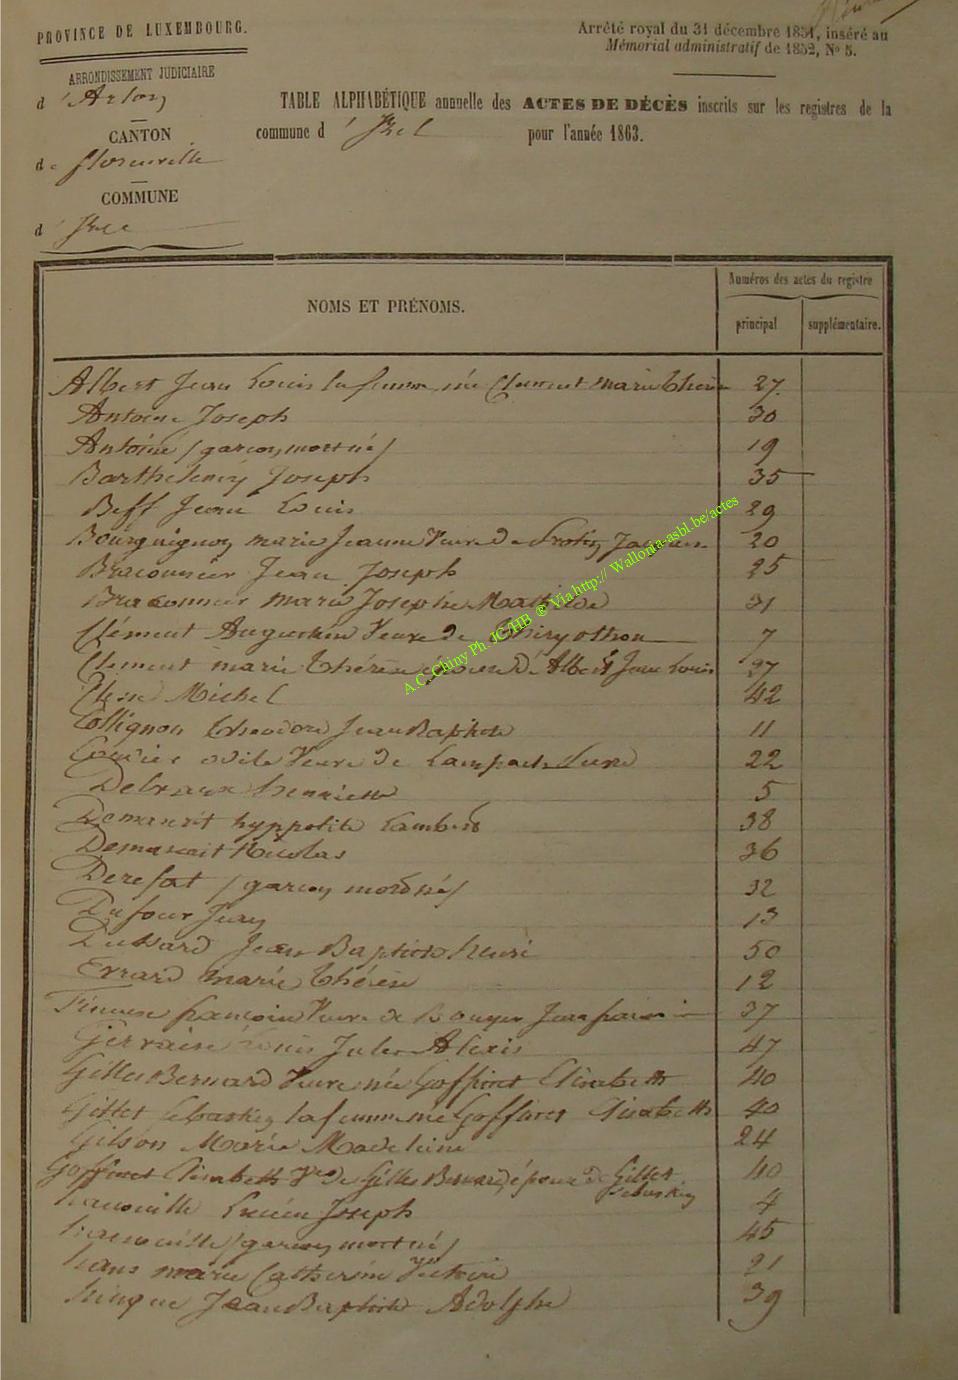 PROVINCE DE LUXEMBOURG.
ARRONDISSEMENT JUDICIAIRE
d'Arlon
CANTON
de florenville
COMMUNE
d'Izel
Arrêté royal du 31 décembre 1851, inséré au
Mémorial administratif de 1852, No 5.
TABLE ALPHABÉTIQUE annuelle des ACTES DE DÉCÈS inscrits sur les registres de la
commune d'Izel pour l'année 1863.
NOMS ET PRÉNOMS.
Numéros des actes du registre
principal
supplémentaire.
Albert Jean Louis la femme née Clement marie Thérèse 27.
Antoine Joseph 30
Antoine (garçon mort né) 19
Barthelemy Joseph 35
Biff Jean Louis 29
Bourguignon marie Jeanne Veuve de Jacques 20
Braconnier Jean Joseph 25
Braconnier marie Josephe Mathilde 31
Clément Augustin Veuve de Thiry 7
Clement marie Thérèse épouse d'Albert Jean Louis 27
Michel 42
Collignon theodore Jean Baptiste 11
odile Veuve de 22
Debraux henriette 5
Demanet hyppolite Lambert 38
Nicolas 36
(garçon mort né) 32
Dufour Jean 13
Dussard Jean Baptiste henri 50
Errard marie thérèse 12
Veuve de 37
Gervaise Louis Jules Alexis 47
Gilles Bernard Veuve née Goffinet Elisabeth 40
Gillet sebastien la femme née Goffinet Elisabeth 40
Gilson Marie Madeleine 24
Goffinet Elisabeth Ve de Gilles Bernard, épouse de Gillet 40
Sebastien
hanouille Lucien Joseph 4
hanouille (garçon mort né) 45
hans marie Catherine Victoire 21
Jean Baptiste Adolphe 39
A.C. Chiny Ph. JC/HB ® Via http:// Wallonia-asbl.be/actes